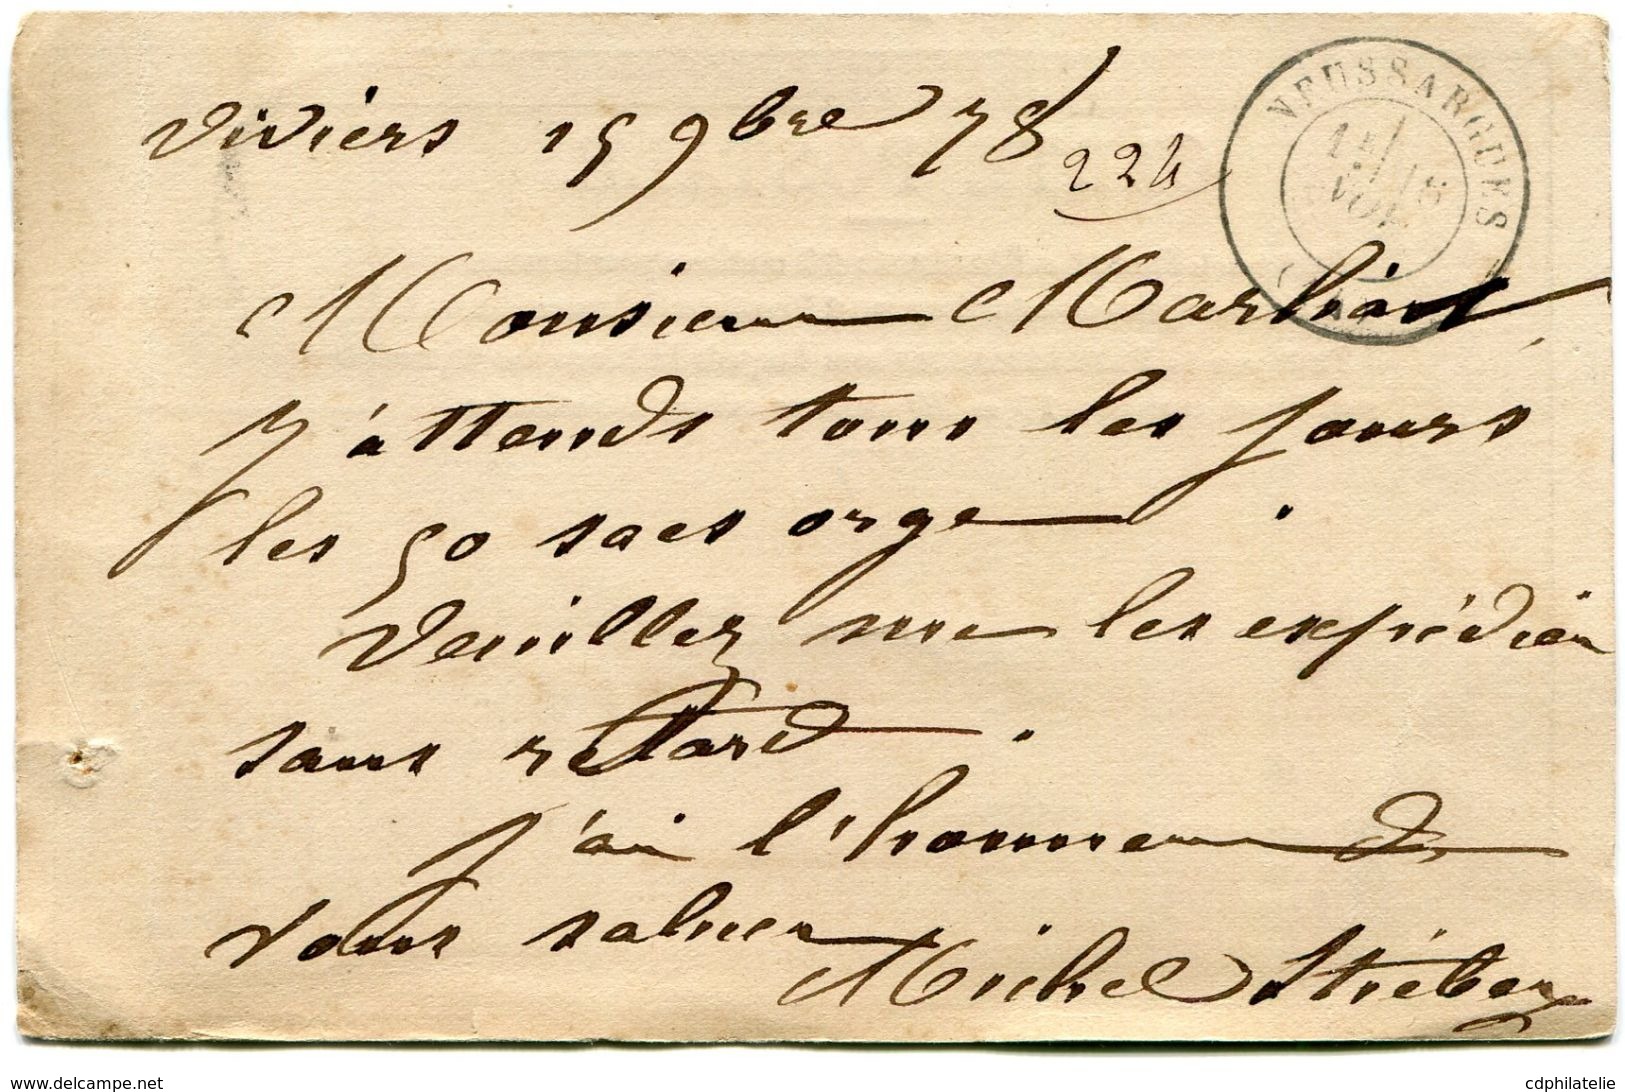 Viviers 15 9bre 78
224
NEUSSARGUES
NOV
Monsieur
J'attends tous les jours
les 50 sacs orge .
Veuillez me les expédier
sans retard .
j'ai l'honneur de
vous saluer
Michel
www.delcampe.net
cdphilatelie